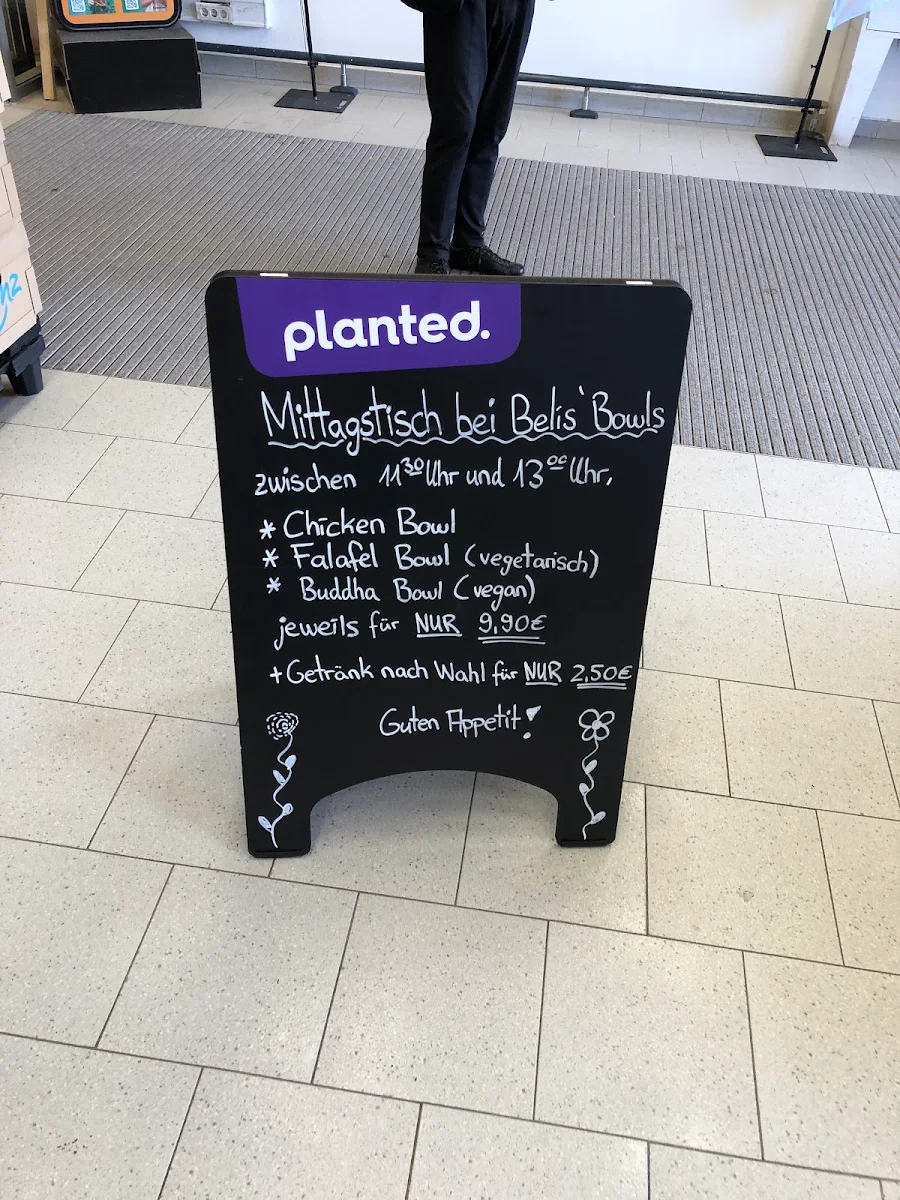 planted.
Mittagstisch bei Belis' Bowls
zwischen 11³⁰ Uhr und 13⁰⁰ Uhr,
* Chicken Bowl
* Falafel Bowl (vegetarisch)
* Buddha Bowl (vegan)
jeweils für NUR 9,90€
+ Getränk nach Wahl für NUR 2,50€
Guten Appetit!